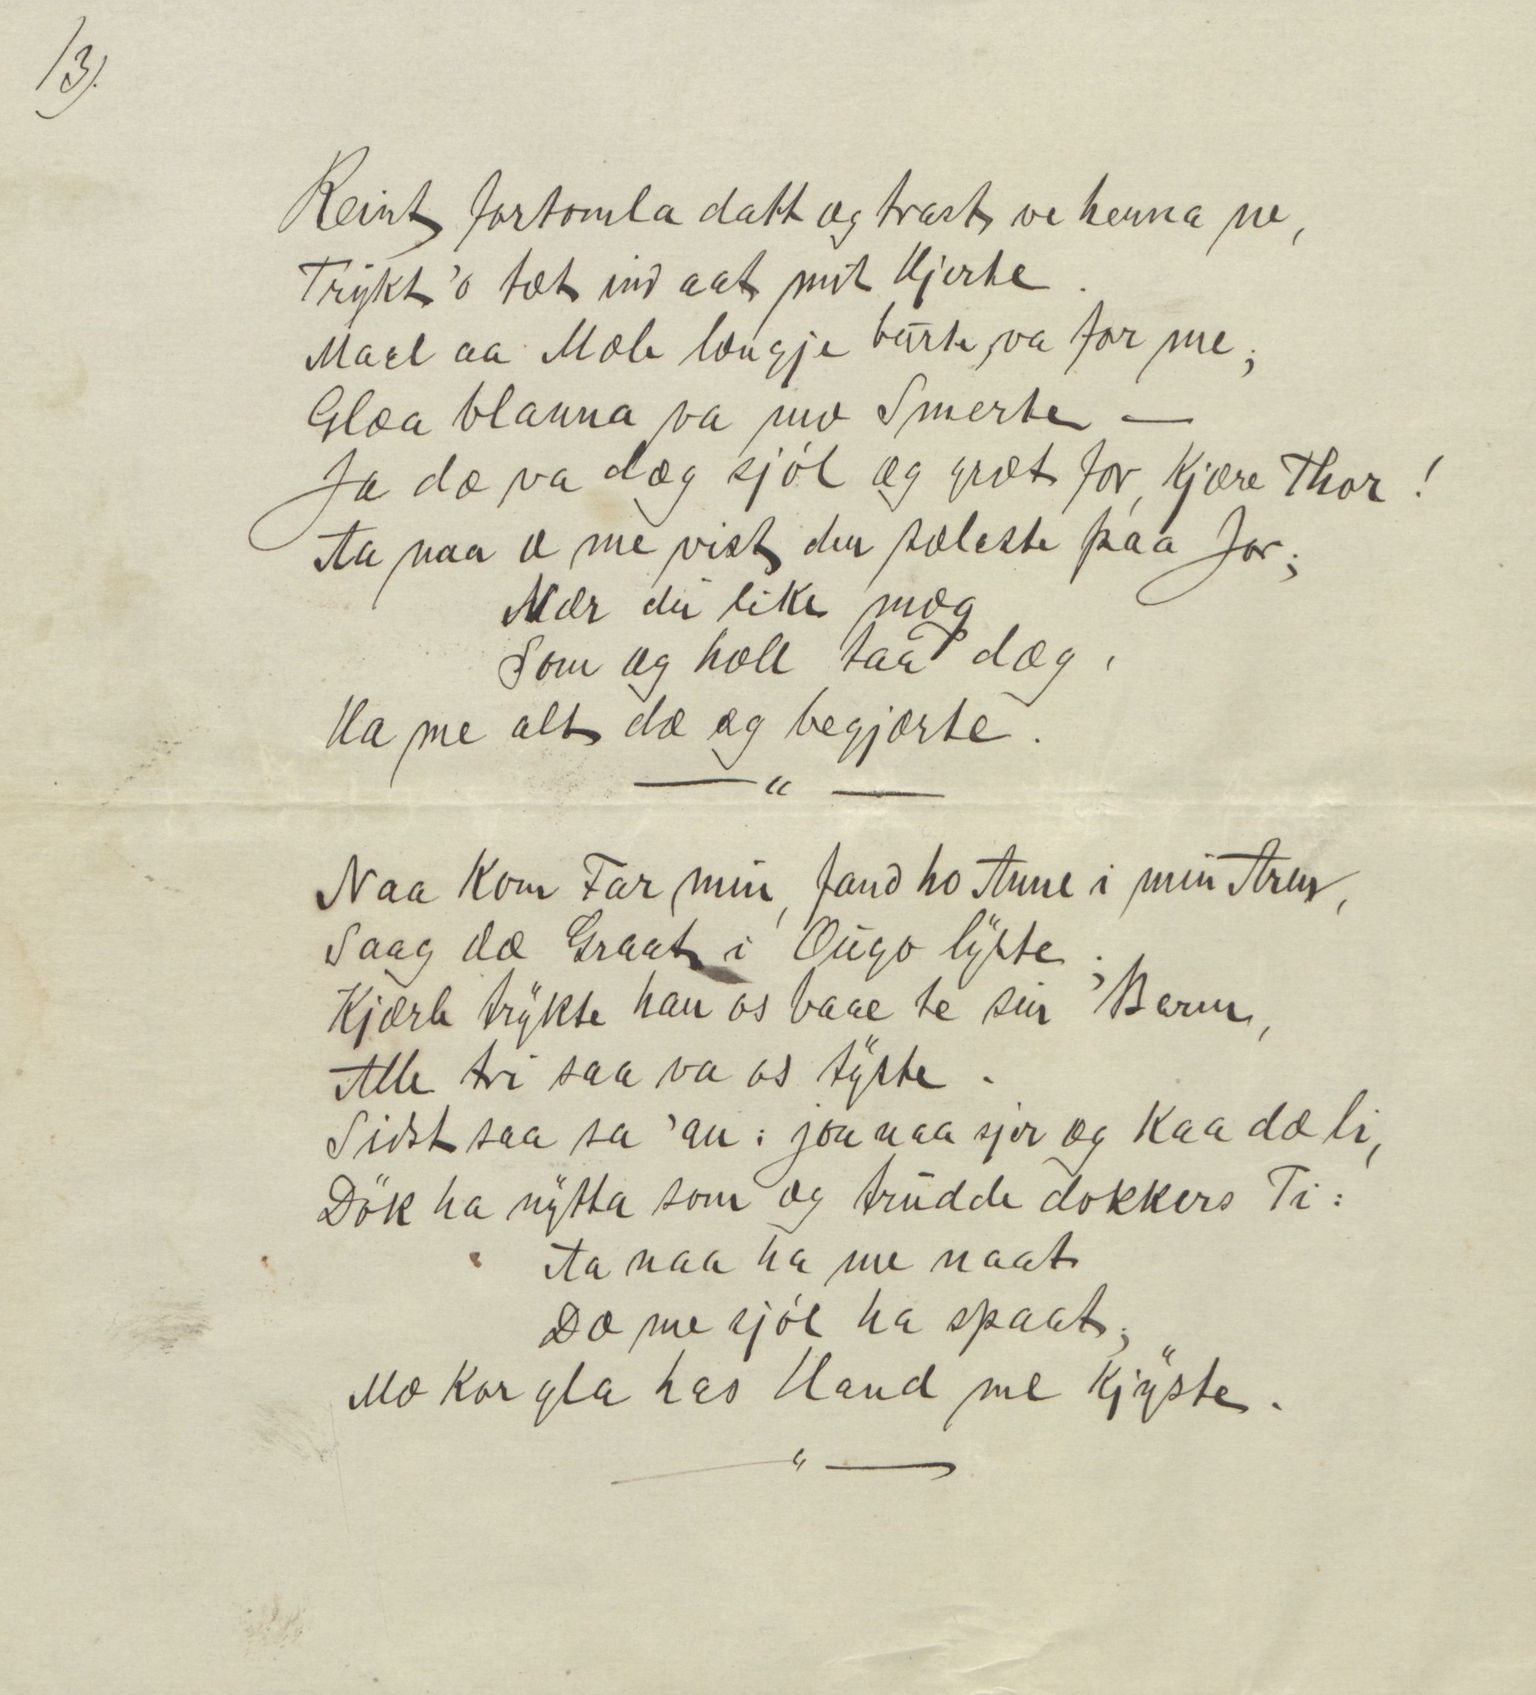 13).
Reint fortomla datt æg trast ve henna ne,
Trÿkt 'o tæt ind aat mit Hjerte.
Mael aa Mæle længje burte va for me;
Glæa blanna va mæ Smerte —
Ja dæ va dæg sjól æg græt for, Kjære Thor!
Aa naa æ me vist den sæleste paa Jor;
Nær du like mæg
Som æg hæll taa dæg,
Ha me alt dæ æg begjærte.
— " —
Naa Kom Far min, fand ho Anne i min Arm,
Saag dæ Graat i Øugo lÿste;
Kjærle trÿkte han os baae te sin Barm,
Alle tri saa va os tÿste.
Sidst saa sa 'an: jou naa sjer æg Kaa dæ li,
Dök ha nÿtta som æg trudde dokkers Ti:
Aa naa ha me naat
Dæ me sjól ha spaat;
Mæ Kor gla has Hand me Kjÿste.
— " —